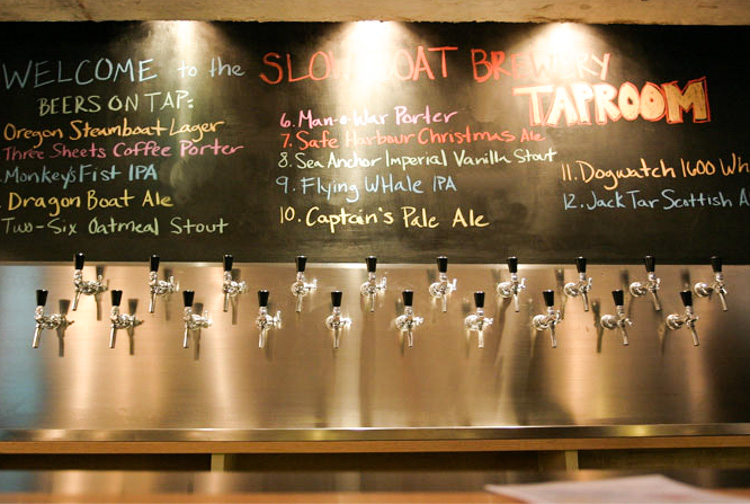 WELCOME to the SLOW BOAT BREWERY
TAPROOM
BEERS ON TAP:
Oregon Steamboat Lager
Three Sheets Coffee Porter
Monkey's Fist IPA
Dragon Boat Ale
Two-Six Oatmeal Stout
6. Man-o-War Porter
7. Safe Harbour Christmas Ale
8. Sea Anchor Imperial Vanilla Stout
9. Flying Whale IPA
10. Captain's Pale Ale
11. Dogwatch 1600 Wh
12. Jack Tar Scottish A